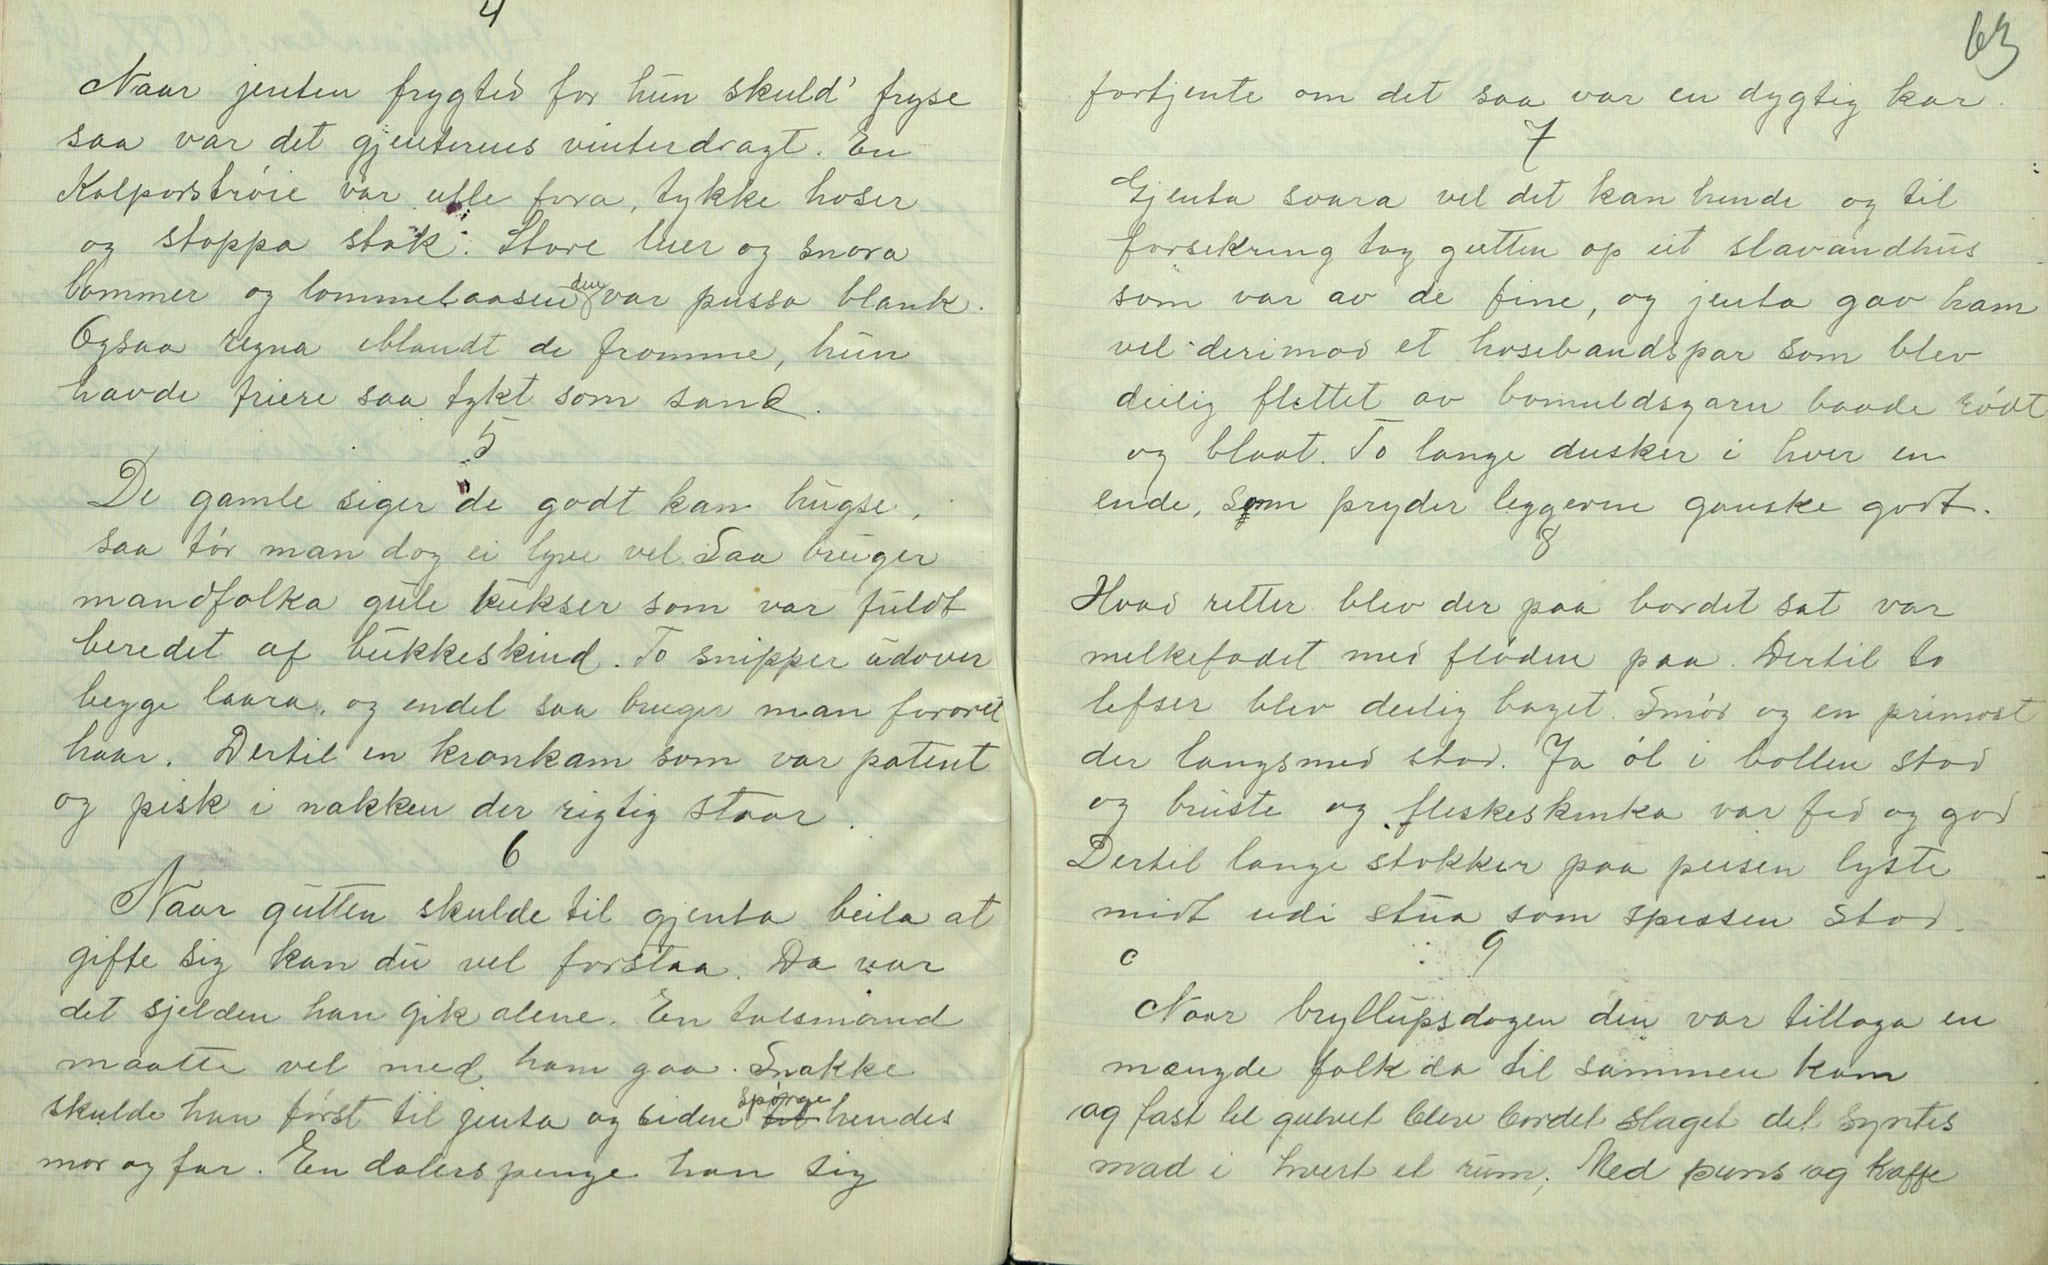 4
Naar jenten frygted for hun skuld' fryse
saa var det gjenternes vinterdragt. En
Kalporstrøie var ufle fora, tykke hoser
og stoppa stak. Store luer og snora
lommer og lommelaasen den var pussa blank.
Ogsaa regna iblandt de fromme, hun
havde friere saa tykt som sand.
5
De gamle siger de godt kan hugse,
saa tór man dog ei lyve vel. Saa bruger
mandfolka gule bukser som var fuldt
beredet af bukkeskind. To snipper udover
begge laara, og endel saa bruger man
haar. Dertil en kronkam som var patent
og pisk i nakken der rigtig staar.
6
Naar gutten skulde til gjenta beila at
gifte sig kan du vel forstaa. Da var
det sjelden han gik alene. En talsmand
maatte vel med ham gaa. Snakke
skulde han først til jenta og siden spørge til hendes
mor og far. En dalers penge han sig
63
fortjente om det saa var en dygtig kar.
7
Gjenta svara vel det kan hende og til
forsikring tog gutten op eit slavandhus
som var av de fine, og jenta gav ham
vel derimod et hosebandspar som blev
deilig flettet av bomuldsgarn baade rødt
og blaat. To lange dusker i hver en
ende, som pryder leggerne ganske godt.
8
Hvad retter blev der paa bordet sat var
melkefadet med fløden paa. Dertil to
lefser blev deilig baget. Smør og en primost
der langsmed stod. Ja øl i bollen stod
og bruste og fleskeskinka var fed og god
Dertil lange stokker paa peisen lyste
midt udi stua som spissen stod.
c 9
Naar bryllupsdagen den var tillaga en
mængde folk da til sammen kom
og fast til gulvet blev bordet slaget det syntes
mad i hvert et rum, Med puns og kaffe